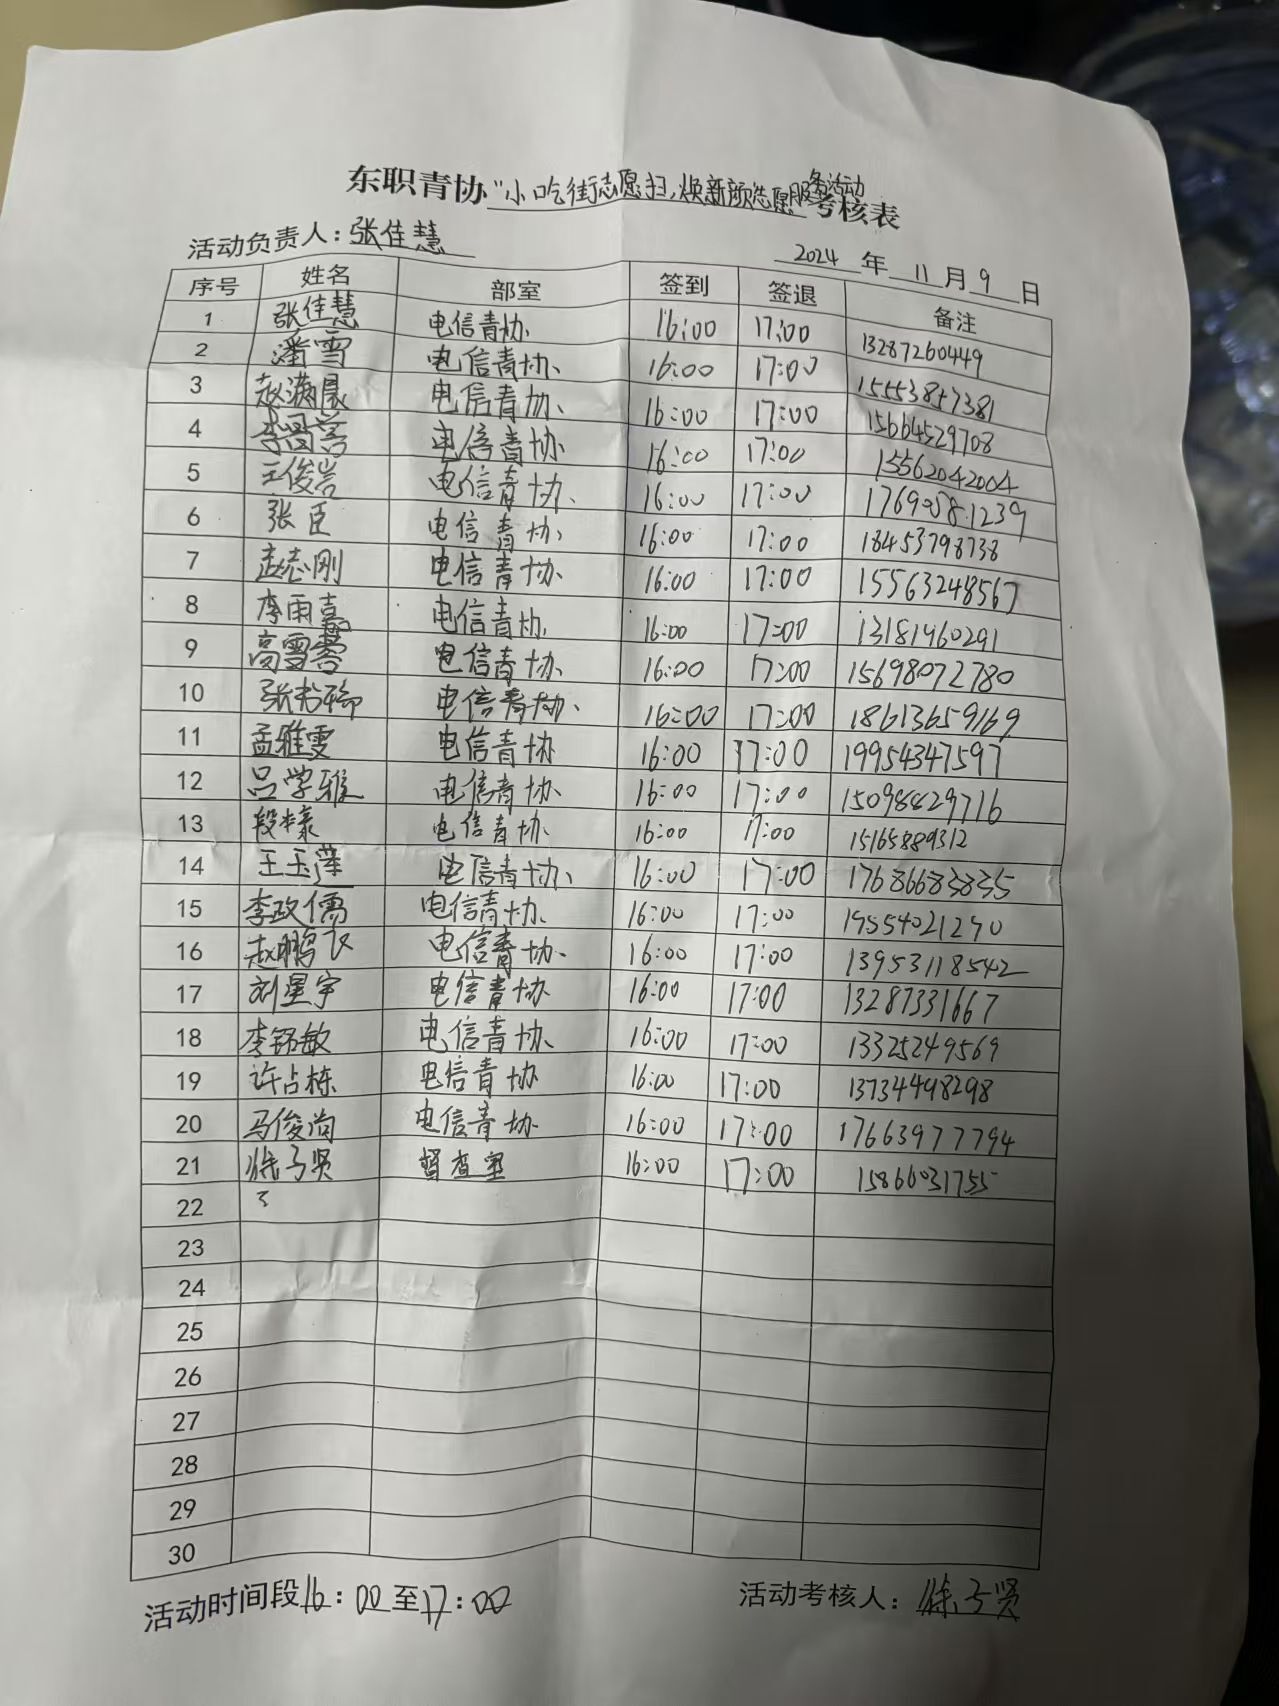 东职青协"小吃街志愿扫,焕新颜志愿服务活动考核表
活动负责人:张佳慧
2024 年 11 月 9 日
序号 姓名 部室 签到 签退 备注
1 张佳慧 电信青协 16:00 17:00 13287260449
2 潘雪 电信青协、 16:00 17:00 15553857381
3 赵满晨 电信青协、 16:00 17:00 15664529708
4 电信青协 16:00 17:00 15562042004
5 王俊岩 电信青协、 16:00 17:00 17690581239
6 张臣 电信青协, 16:00 17:00 18453798738
7 孟志刚 电信青协、 16:00 17:00 15563248567
8 李雨嘉 电信青协, 16:00 17:00 13181460291
9 高雪蓉 电信青协、 16:00 17:00 15698072780
10 电信青协、 16:00 17:00 18613659169
11 孟雅雯 电信青协 16:00 17:00 19954347597
12 吕学雅 电信青协、 16:00 17:00 15098429716
13 电信青协、 16:00 17:00 15165889312
14 王玉莲 电信青协、 16:00 17:00 17686683835
15 李政儒 电信青协、 16:00 17:00 19554021290
16 赵鹏飞 电信青协、 16:00 17:00 13953118542
17 刘星宇 电信青协 16:00 17:00 13287331667
18 李铭敏 电信青协、 16:00 17:00 13325249569
19 许占栋 电信青协 16:00 17:00 13734498298
20 马俊尚 电信青协 16:00 17:00 17663977794
21 督查室 16:00 17:00 15866031755
22
23
24
25
26
27
28
29
30
活动时间段16:00至17:00
活动考核人: